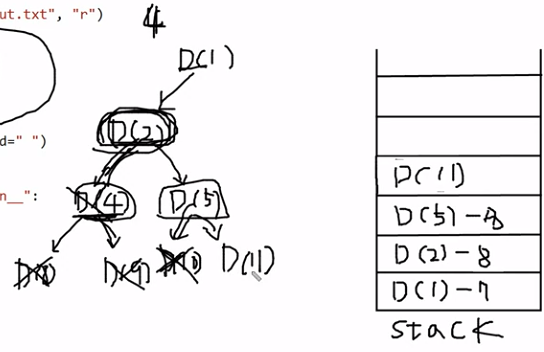 ut.txt", "r")
4
D(1)
D(2)
d=" ")
n__":
D(4)
D(5)
D(8)
D(9)
D(11)
D(11)
D(5)-8
D(2)-8
D(1)-7
stack